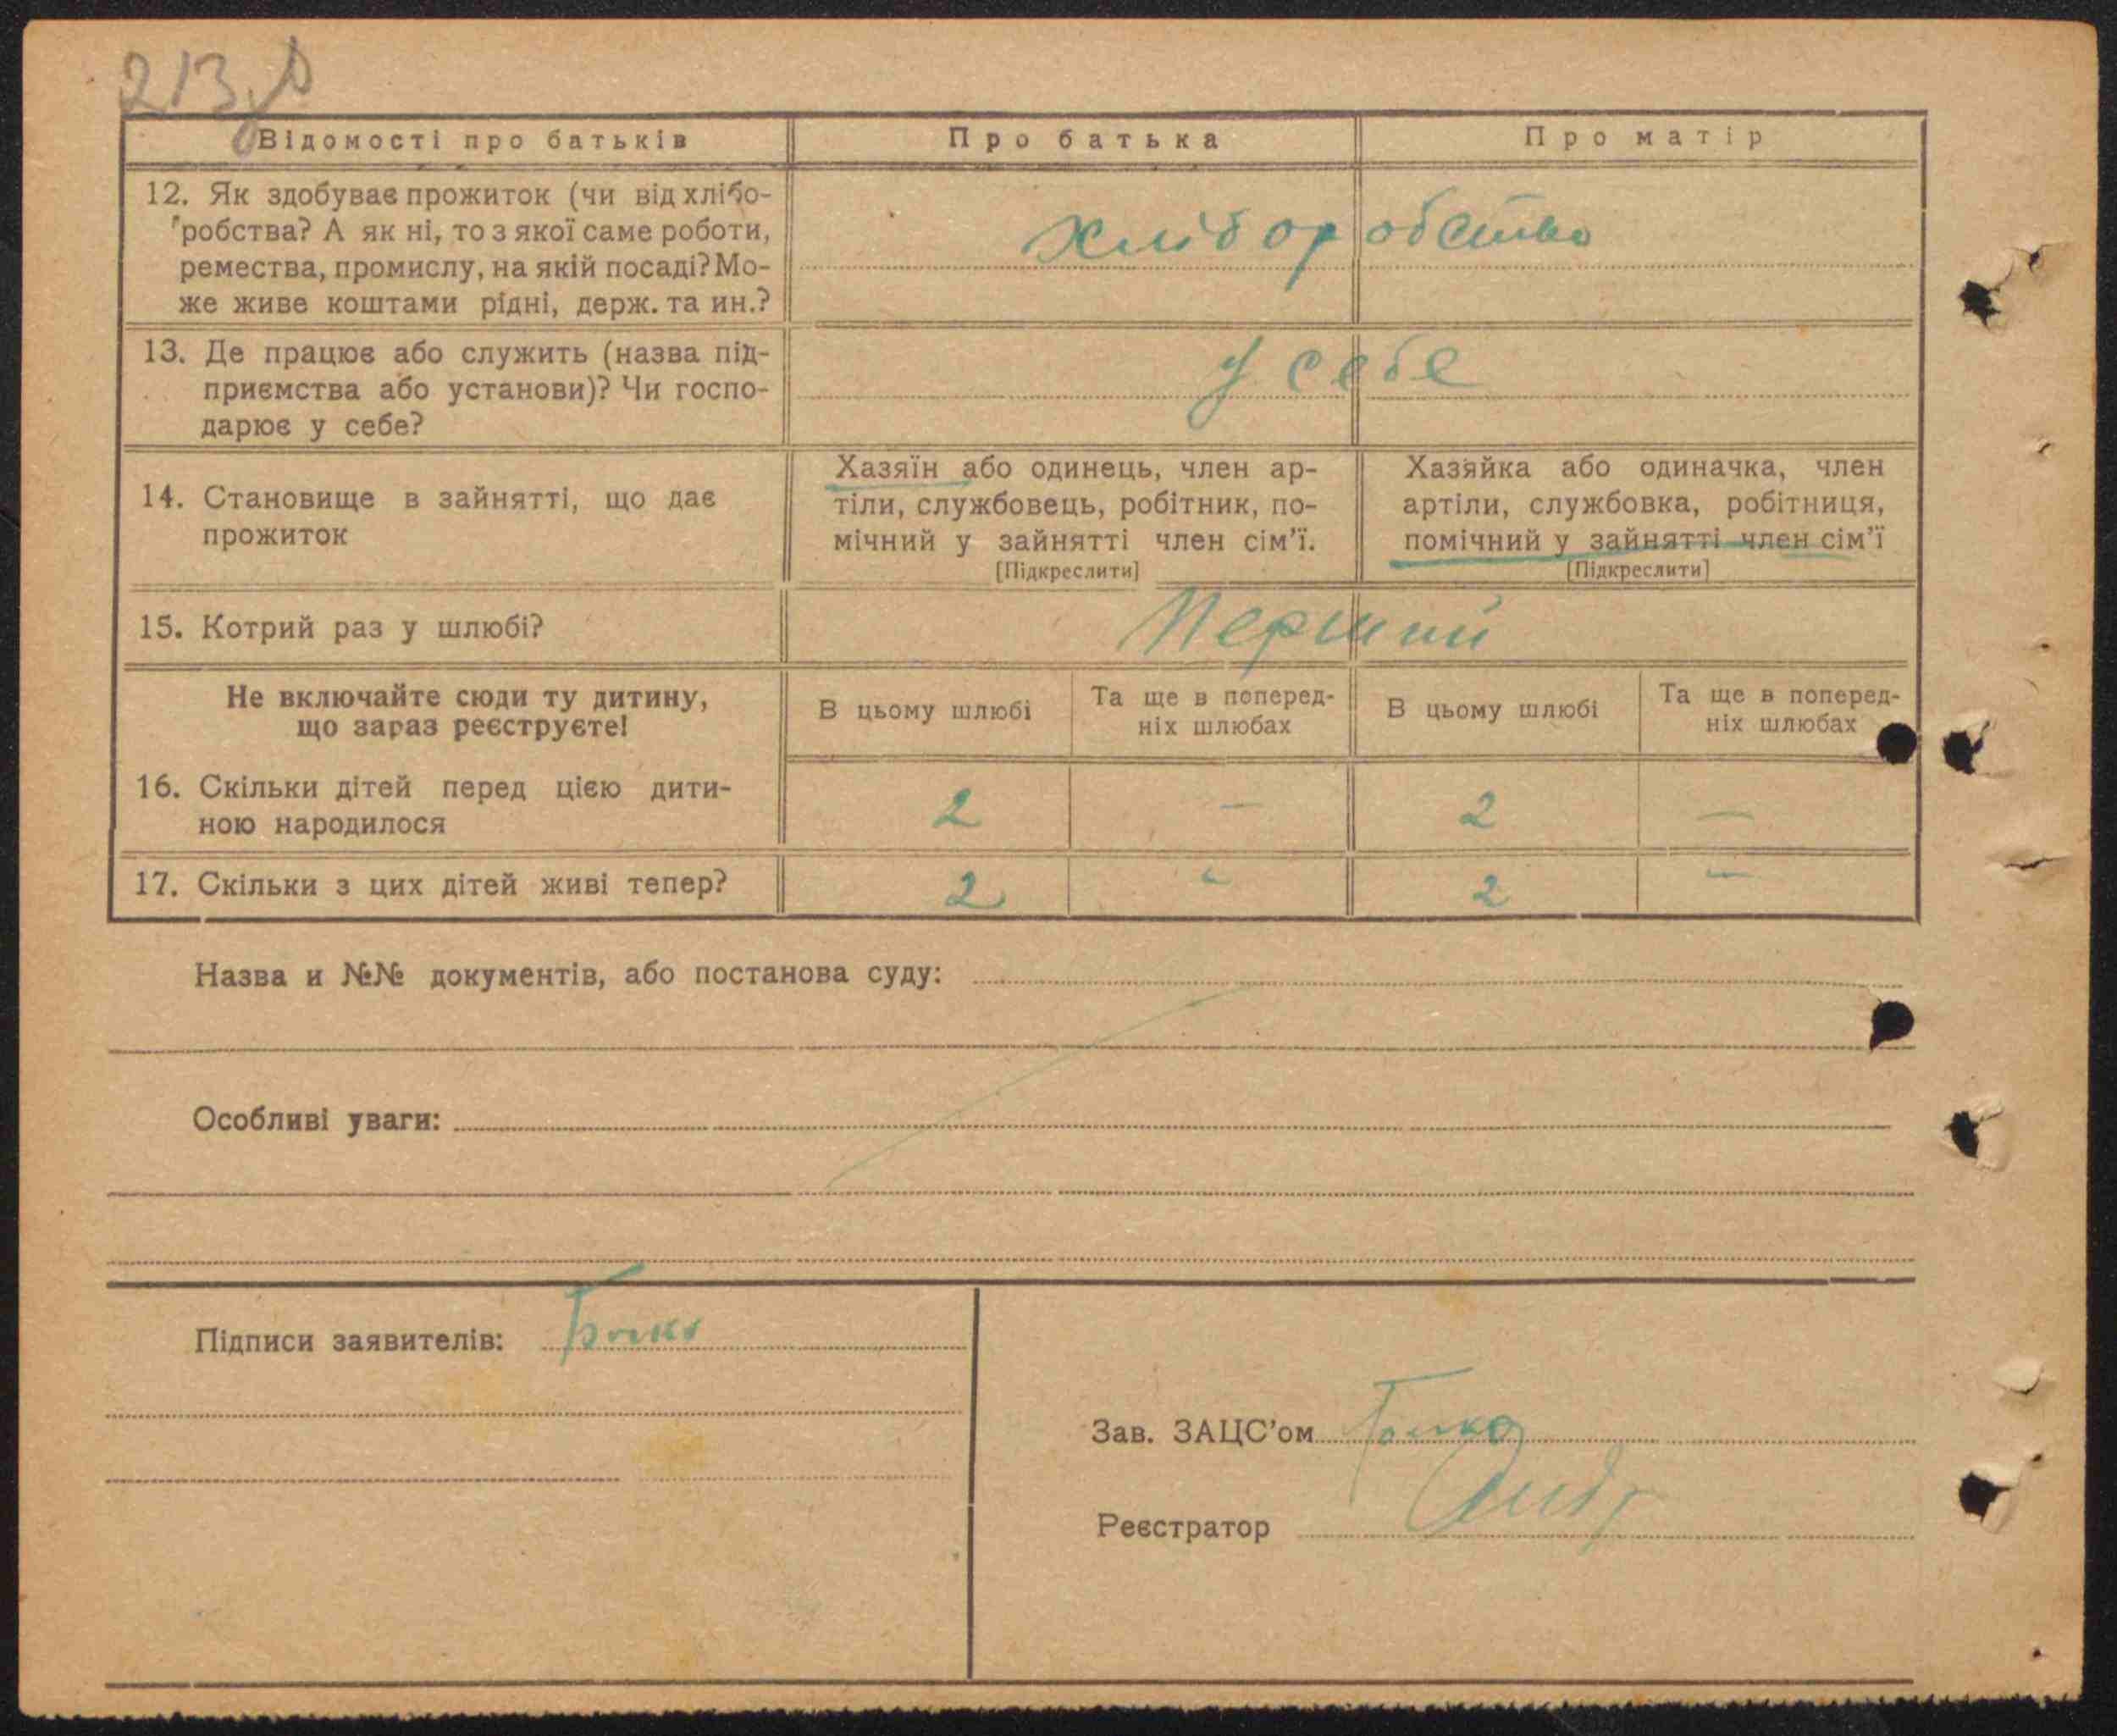 213
Відомості про батьків Про батька Про матір
12. Як здобуває прожиток (чи від хлібо-
робства? А як ні, то з якої саме роботи,
ремества, промислу, на якій посаді? Мо-
же живе коштами рідні, держ. та ин.?
хліборобство
13. Де працює або служить (назва під-
приємства або установи)? Чи госпо-
дарює у себе?
у себе
14. Становище в зайнятті, що дає
прожиток
Хазяїн або одинець, член ар-
тіли, службовець, робітник, по-
мічний у зайнятті член сім'ї.
[Підкреслити]
Хазяйка або одиначка, член
артіли, службовка, робітниця,
помічний у зайнятті член сім'ї
[Підкреслити]
15. Котрий раз у шлюбі? Перший
Не включайте сюди ту дитину,
що зараз реєструєте!
В цьому шлюбі
Та ще в поперед-
ніх шлюбах
В цьому шлюбі
Та ще в поперед-
ніх шлюбах
16. Скільки дітей перед цією дити-
ною народилося
2 — 2 —
17. Скільки з цих дітей живі тепер? 2 — 2 —
Назва и №№ документів, або постанова суду:
Особливі уваги:
Підписи заявителів:
Зав. ЗАЦС'ом
Реєстратор